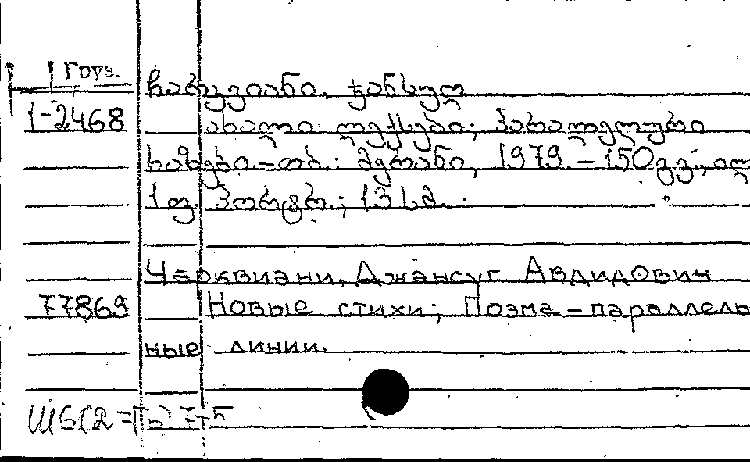 Груз.
ჩარკვიანი, ჯანსუღ
1-2468 ახალი ლექსები; პარალელური
ხაზები.-თბ.: მერანი, 1979.-150გვ.,ილ
1 ფ. პორტრ.; 13 სმ.
Чарквиани, Джансуг Авдидович
77869 Новые стихи; Поэма-параллель
ные линии.